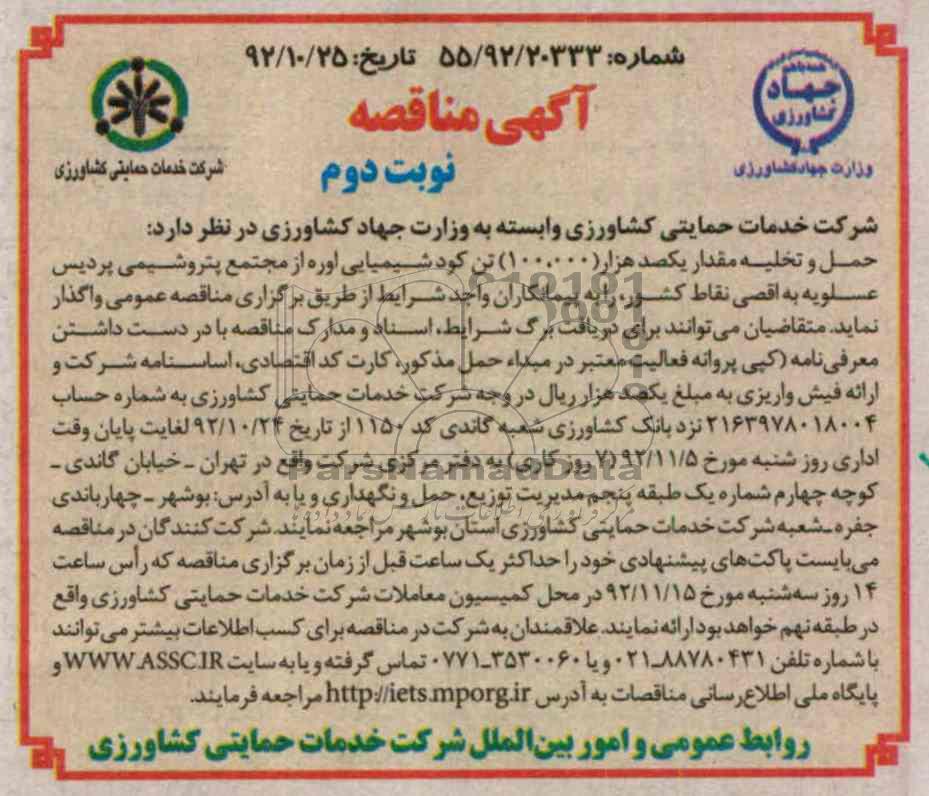 شماره: ۵۵/۹۲/۲۰۳۳۳ تاریخ: ۹۲/۱۰/۲۵
آگهی مناقصه
نوبت دوم
جهاد کشاورزی
وزارت جهادکشاورزی
شرکت خدمات حمایتی کشاورزی
شرکت خدمات حمایتی کشاورزی وابسته به وزارت جهاد کشاورزی در نظر دارد:
حمل و تخلیه مقدار یکصد هزار(۱۰۰,۰۰۰) تن کود شیمیایی اوره از مجتمع پتروشیمی پردیس
عسلویه به اقصی نقاط کشور، را به پیمانکاران واجد شرایط از طریق برگزاری مناقصه عمومی واگذار
نماید. متقاضیان می‌توانند برای دریافت برگ شرایط، اسناد و مدارک مناقصه با در دست داشتن
معرفی‌نامه (کپی پروانه فعالیت معتبر در مبداء حمل مذکور، کارت کد اقتصادی، اساسنامه شرکت و
ارائه فیش واریزی به مبلغ یکصد هزار ریال در وجه شرکت خدمات حمایتی کشاورزی به شماره حساب
۲۱۶۳۹۷۸۰۱۸۰۰۴ نزد بانک کشاورزی شعبه گاندی کد ۱۱۵۰ از تاریخ ۹۲/۱۰/۲۴ لغایت پایان وقت
اداری روز شنبه مورخ ۹۲/۱۱/۵ (۷ روز کاری) به دفتر مرکزی شرکت واقع در تهران ـ خیابان گاندی ـ
کوچه چهارم شماره یک طبقه پنجم مدیریت توزیع، حمل و نگهداری و یا به آدرس: بوشهر ـ چهارباندی
جفره ـ شعبه شرکت خدمات حمایتی کشاورزی استان بوشهر مراجعه نمایند. شرکت کنندگان در مناقصه
می‌بایست پاکت‌های پیشنهادی خود را حداکثر یک ساعت قبل از زمان برگزاری مناقصه که رأس ساعت
۱۴ روز سه‌شنبه مورخ ۹۲/۱۱/۱۵ در محل کمیسیون معاملات شرکت خدمات حمایتی کشاورزی واقع
در طبقه نهم خواهد بود ارائه نمایند. علاقمندان به شرکت در مناقصه برای کسب اطلاعات بیشتر می‌توانند
با شماره تلفن ۸۸۷۸۰۴۳۱ـ۰۲۱ و یا ۳۵۳۰۰۶۰ـ۰۷۷۱ تماس گرفته و یا به سایت WWW.ASSC.IR و
پایگاه ملی اطلاع‌رسانی مناقصات به آدرس http://iets.mporg.ir مراجعه فرمایند.
روابط عمومی و امور بین‌الملل شرکت خدمات حمایتی کشاورزی
ParsNamadData